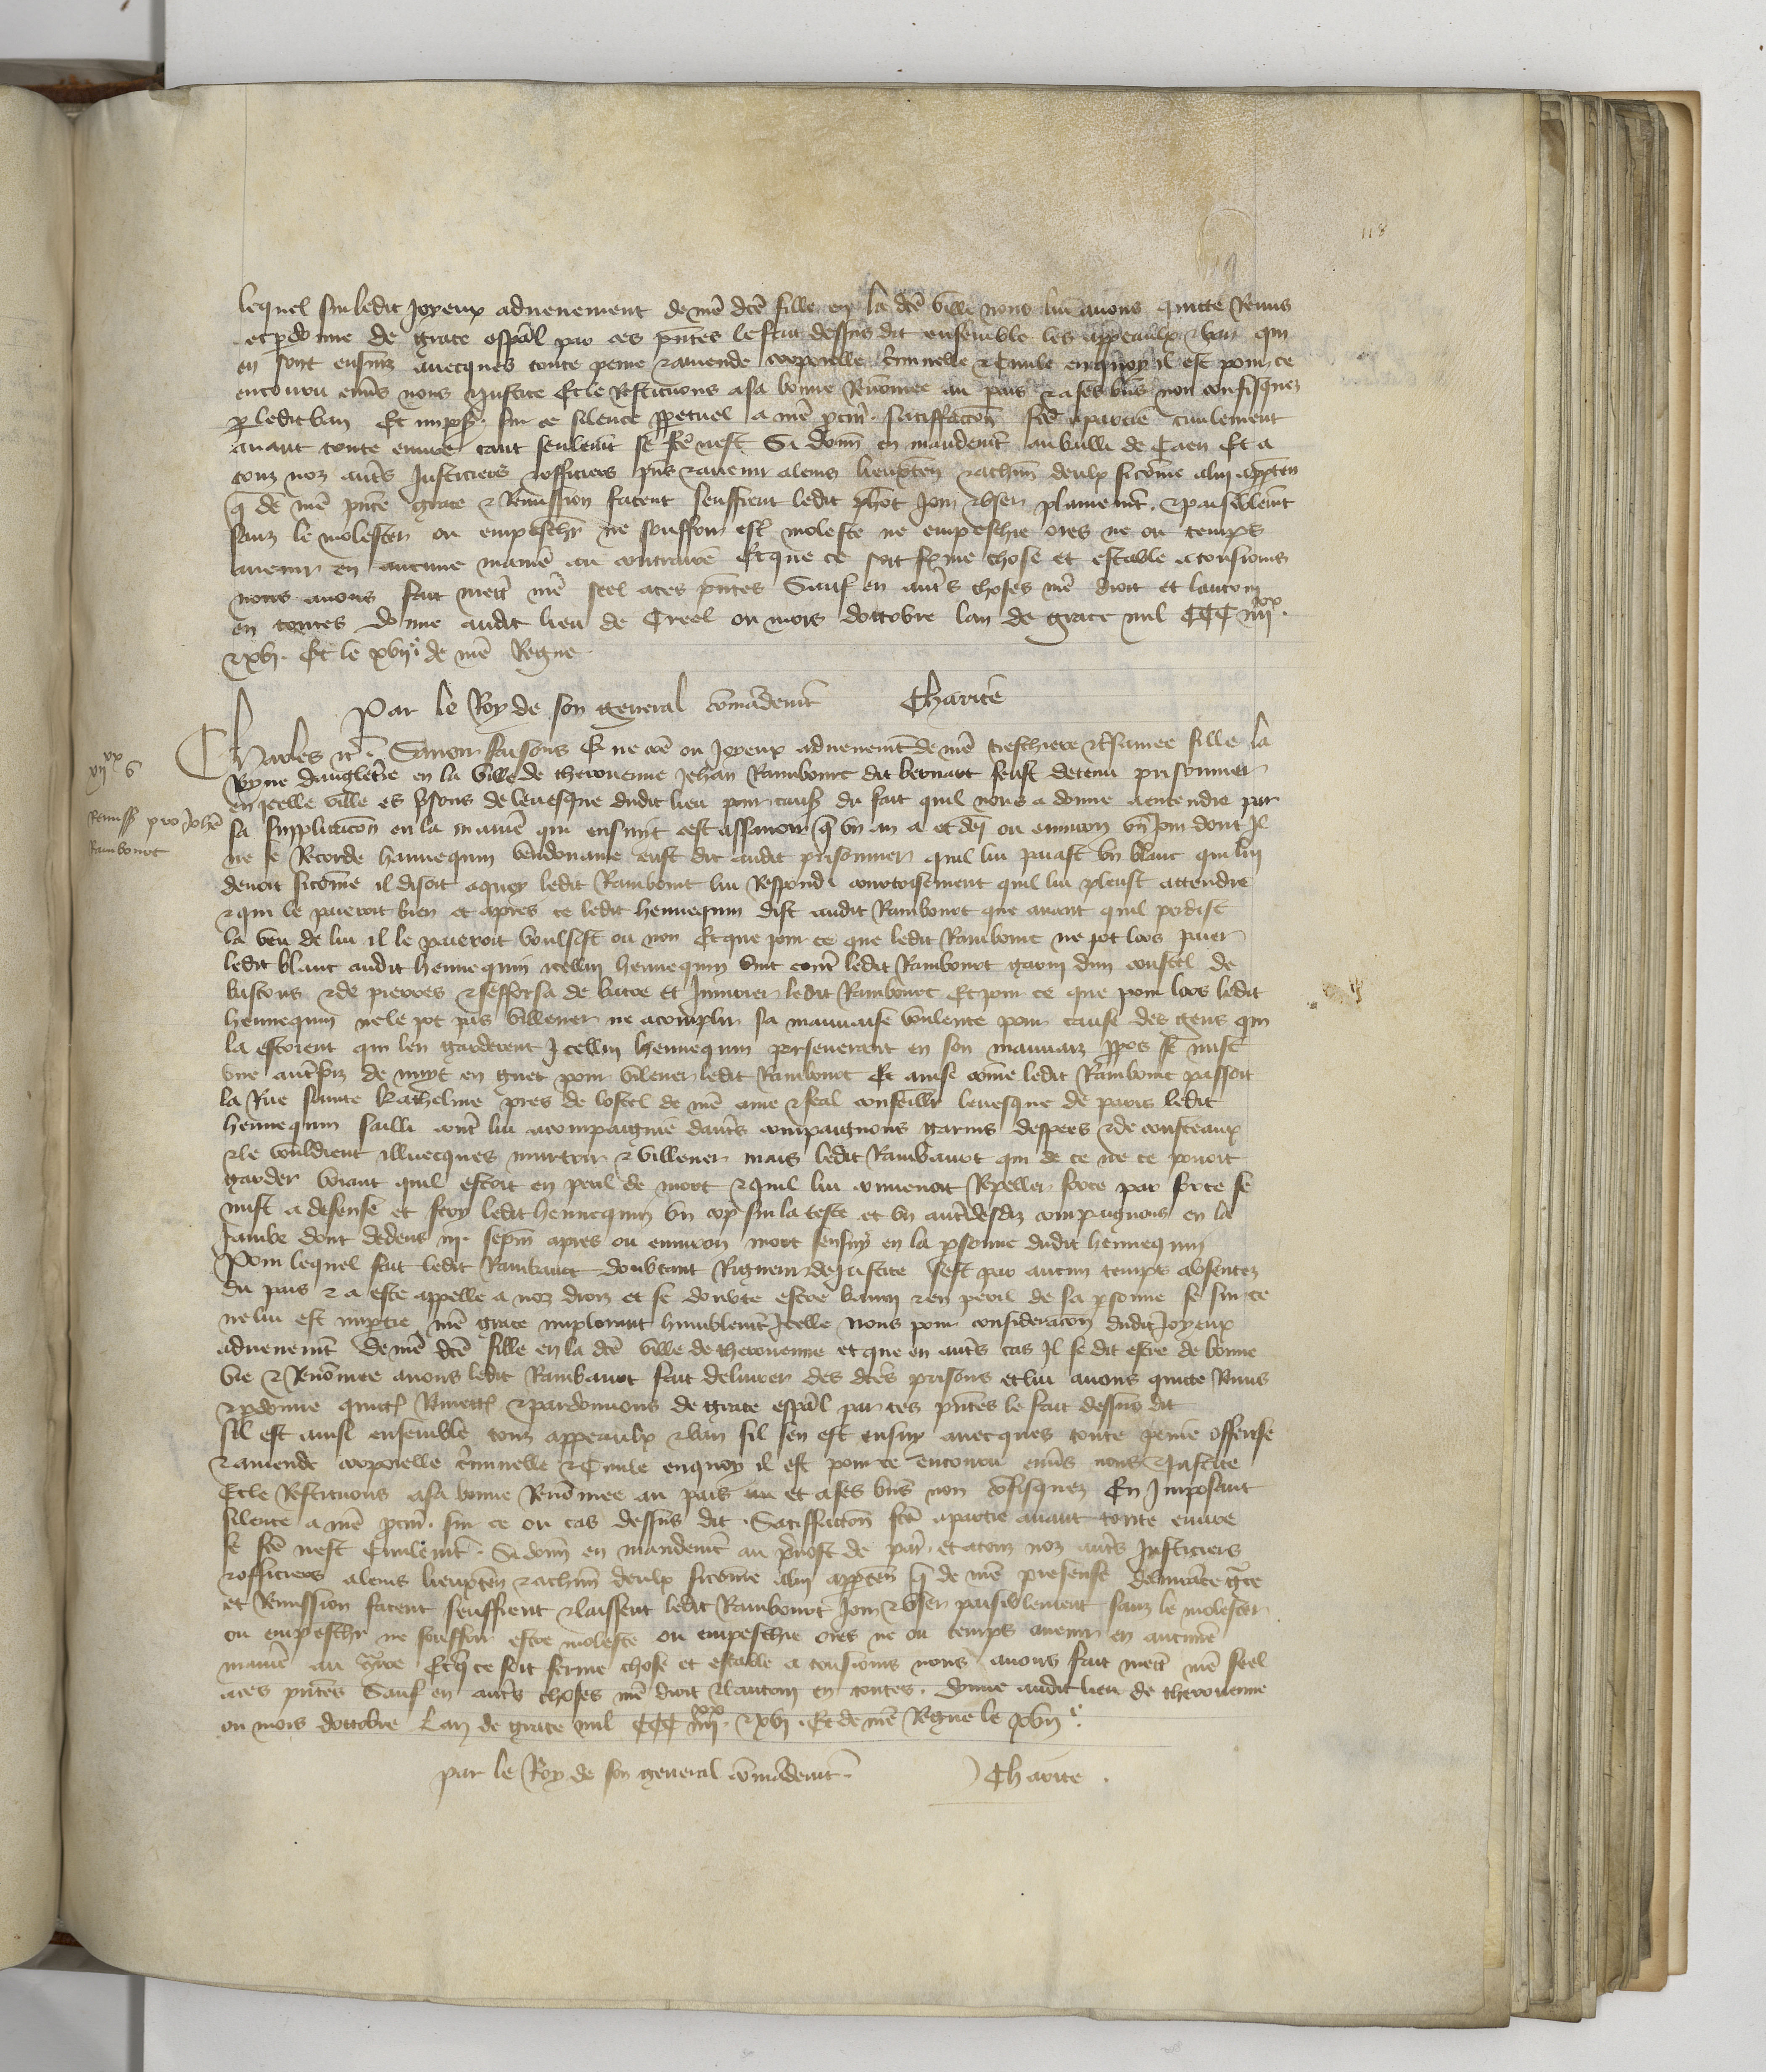 118
lequel sur ledit joyeux aduenement de nre dce fille en la dce ville nous lui auons quitté remis
et pdonne de grace espal par ces pntes le fait dessus dit ensemble les appeaulx & ban qui
en sont ensuiz auecques toute peine & amende corporelle criminelle & ciuile en quoy il est pour ce
encouru enuers nous & justice Et le restituons a sa bonne renommee au pais & a ses biens non confisquez
p ledit ban Et impos sur ce silence ppetuel a nre pcur satisfaccon fce a partie ciuilement
auant toute euure tant seulemt se fce nest Si donn en mandemt au bailli de Caen Et a
touz noz autres justiciers & officiers pns & auenir a leurs lieuxten & a chun deulx sicome a lui apptien
q de nre pnte grace & remission facent seuffrent ledit joir & user plainemt & paisiblemt
sanz le molester ou empeschr ne souffrir est moleste ne empeschie ores ne ou temps
auenir en aucune maniē au contraire Et que ce soit ferme chose et estable a tousiours
nous auons fait mett nre seel a ces pntes Sauf en autres choses nre droit et lautruy
en toutes donne audit lieu de Creel ou mois doctobre lan de grace mil CCC iiii xx
& xvi. Et le xvii e de nre Regne
Par le Roy de son general comādemt Charité
vii xx 6
Remiss pro Johe
Rambout
Charles &c. Sauoir faisons Et ne come ou joyeux aduenemt de nre treschiere & tresamee fille la
Royne dangleterre en la ville de therouenne Jehan Rambout dit bernart feust detenu prisonnier
en icelle ville es prisons de leuesque dudit lieu pour cause du fait quil nous a donne a entendre par
sa supplicacon en la maniē qui ensuit cest assauoir q un an a et dej ou enuiron un jour dont Il
ne se recorde hannequin eust dit audit prisonnier quil lui paiast un blanc qui lui
deuoit sicome il disoit a quoy ledit Rambout lui respondi courtoisement quil lui pleust attendre
& qui le paieroit bien et apres ce ledit hennequin dist audit Rambout que auant quil perdist
la veu de lui il le paieroit voulsist ou non Et que pour ce que ledit Rambout ne pot lors paier
ledit blanc audit hennequin icellui hennequin vint contre ledit Rambout garni dun coustel de
bastons & de pierres & sefforsa de batre et Iniurier ledit Rambout Et pour ce que pour lors ledit
hennequin ne le pot pas villener ne acomplir sa mauuaise voulente pour cause des gens qui
la estoient qui len garderent Icellui hennequin perseuerant en son mauuaiz ppos se mist
une autrefoiz de nuyt en guet pour vilener ledit Rambout Et ainsi come ledit Rambout passoit
la rue sainte katheline pres de lostel de nre ame & feal conseillr leuesque de paris ledit
hennequin sailli contre lui acompaignie dautres compaignons garnis despees & de cousteaux
& le vouldrent illuecques murtrir & villener mais ledit Rambaut qui de ce ne ce pouoit
garder veiant quil estoit en peril de mort & quil lui conuenoit repeller force par force se
mist a defense et fery ledit hennequin un cop sur la teste et un autre desdiz compaignons en la
jambe dont dedens iii sepm apres ou enuiron mort sensuy en la psonne dudit hennequin
Pour lequel fait ledit Rambaut doubtant rigueur de justice sest par aucun temps absentez
du pais & a este appelle a noz droiz et se doubte estre banny & en peril de sa psonne se sur ce
ne lui est imptie nre grace implorant humblemt Icelle Nous pour consideracon dudit joyeux
aduenemt de nre dce fille en la dce ville de therouenne et que en autres cas Il se dit estre de bonne
vie & renommee auons ledit Rambaut fait deliurer des dces prisons et lui auons quitte remis
& pdonne quitt remett & pardonnons de grace espal par ces pntes le fait dessus dit
sil est ainsi ensemble touz appeaulx & ban sil sen est ensuy auecques toute peine offense
& amende corporelle criminelle & ciuile en quoy il est pour ce encouru enuers nous & justice
Et le restituons a sa bonne renommee au pais et a ses biens non confisquez En Imposant
silence a nre pcur sur ce ou cas dessus dit. Satisfaccon fce a partie auant toute euure
se fce nest ciuilemt. Si donn en mandemt au preuost de par et a touz noz autres justiciers
& officiers a leurs lieuxten & a chun deulx sicomme a lui apptien q de nre presense deliurāce gce
et remission facent seuffrent & laissent ledit Rambout joir & user paisiblement sanz le molester
ou empeschr ne souffrir estre moleste ou empeschie ores ne ou temps auenir en aucune
maniē au cōtre Et q ce soit ferme chose et estable a tousiours nous auons fait mett nre seel
a ces pntes Sauf en autres choses nre droit & lautruy en toutes. Donne audit lieu de therouenne
ou mois doctobre Lan de grace mil CCC iiii xx & xvi. Et de nre Regne le xvii e.
par le Roy de son general cōmādemt. Charite.